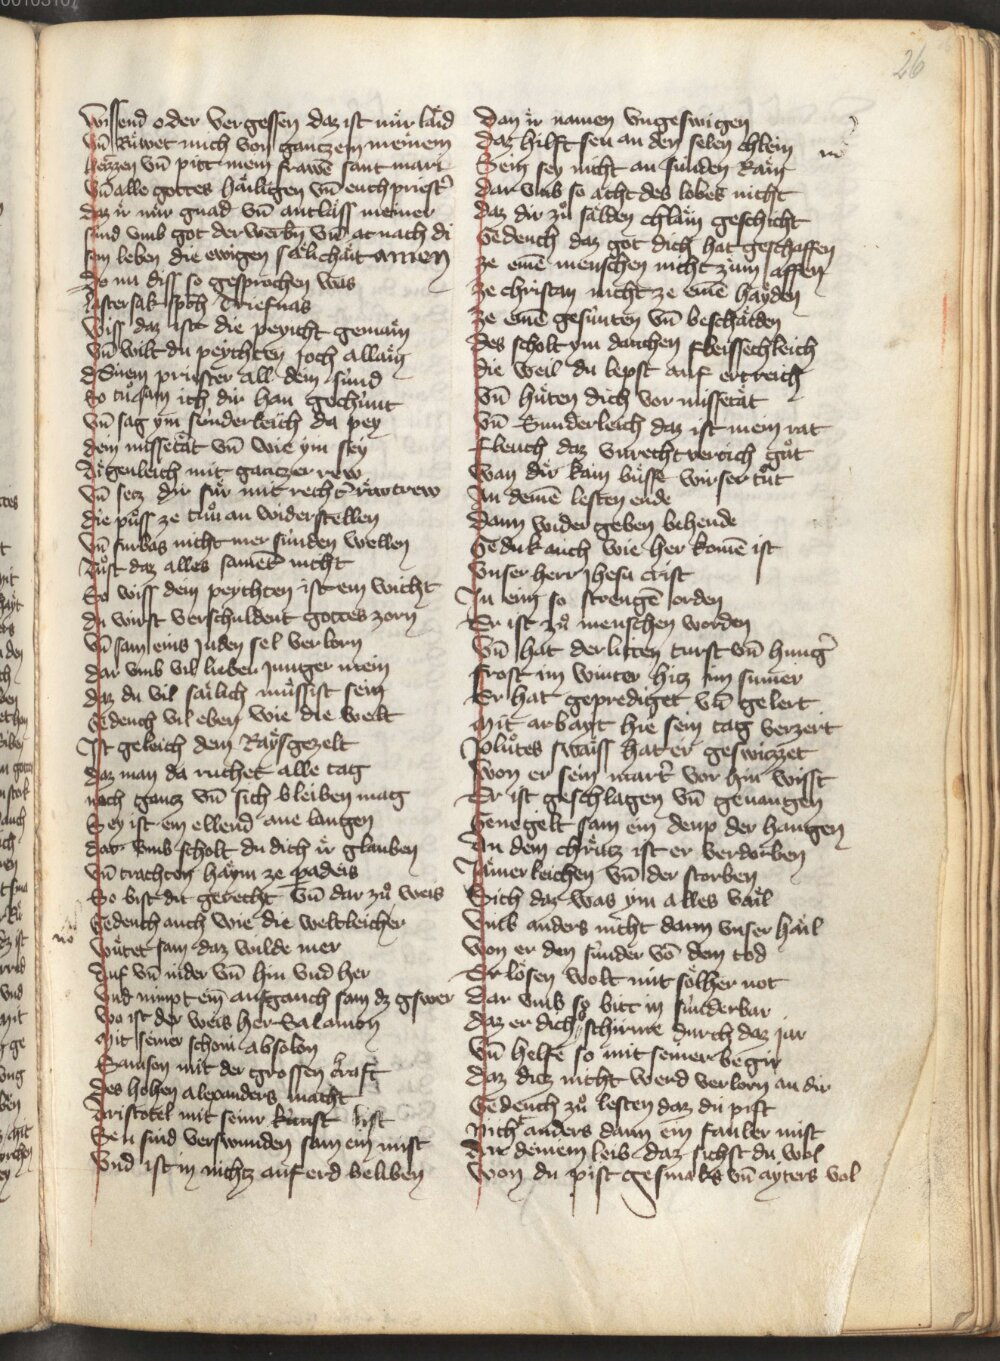 26
Wissend oder vergessen daz ist mir laid
Vn̄ Rüwet mich von ganczem meinem
herczen vn̄ pitt mein frawē sant mari
Vn̄ alle gottes häiligen vn̄ euch priest̄
daz ir mir gnad vn̄ antläss meiner
sünd vmb got der werbn vn̄ ac nach di
sem leben die ewigen sälichait amen
Do nu diss so gesprochen was
lastersak sprch Triefnas
Wiss daz ist die peyicht gemain
Vn̄ wilt du peychten joch allain
Deinem priester all dein sünd
So tu sam ich dir han gechünt
Vn̄ sag ym sunderleich da pey
dein missetät vn̄ wie ym sey
Aigenleich mit ganczer rew
Vn̄ secz dir für mit rechter trew
die püss ze tun an widerstellen
Vn̄ fürbas nicht mer sünden wellen
Tust daz alles samēt nicht
So wiss dein peychten ist ein wicht
du wirst verschuldent gottes zorn
Vn̄ sam eins juden sel verlorn
dar vmb vil lieber junger mein
daz du vil sälich müssist sein
Gedench vil eben wie die welt
Ist geleich dem Raysgezelt
daz man da richet alle tag
nach gancz vn̄ sich bleiben mag
Sey ist ein ellend ane langen
dar vmb scholt du dich ir glauben
Vn̄ trachten haym ze padeis
So bist du gerecht vn̄ dar zů weis
Gedench auch wie die weltleicher
Wütet sam daz wilde mer
Auf vn̄ nider vn̄ hin vnd her
Vnd nimpt ein aufganch sam dz gswer
Wo ist der weis her Salamon
Mit seiner schoni absolon
Samson mit der grossen kraft
des hohen alexanders macht
Aristotel mit seinr kunst list
Seu sind verswunden sam ein mist
Vnd ist in nichtz auf erd beliben
Dan ir namen vngeswigen
Daz hilft seu an den selen chlein
Sein sey nicht an sünden Rain
Dar vmb so acht des lobes nicht
daz dir zů sälden chlain geschicht
Gedench daz got dich hat geschaffen
Ze einē menschen nicht zum affen
Ze christan nicht ze einē hayden
Ze einē gesunten vn̄ beschaiden
Des scholt ym danchen fleissechleich
die weil du lepst auf ertreich
Vn̄ hüten dich vor missetät
Vn̄ Sunderleich daz ist mein rat
Fleuch daz vnrechtvertich gůt
Wan dir kain büsse wirser tut
An deinē lesten ende
Dann wider geben behende
Gedenk auch wie her komē ist
Vnser herr Jhesu crist
In ein so strengē orden
Er ist zů menschen worden
Vn̄ hat der litten turst vn̄ hunger
Frost im winter hicz im sumer
Er hat geprediget vn̄ gelert
Mit arbayt hie sein tag verzert
Plůtes swaiss hat er geswiczet
Won er sein martr̄ vor hin wisst
Er ist geschlagen vn̄ geuangen
Genegelt sam ein deup der hangen
An dem chräucz ist er verdorben
Jämerleichen vn̄ der storben
Sich daz was ym alles vail
Vmb anders nicht dann vnser hail
Won er den sünder vō dem tod
Erlösen wolt mit sölher not
Dar vmb so bitt in sunderbar
daz er dich schirme durch daz jar
Vn̄ helfe so mit seiner begir
Daz diez nicht werd verlorn an dir
Gedench zů lesten daz du pist
Nicht anders dann ein fauler mist
An deinem leib daz sichst du wol
Won du pist gesmaks vn̄ ayters vol